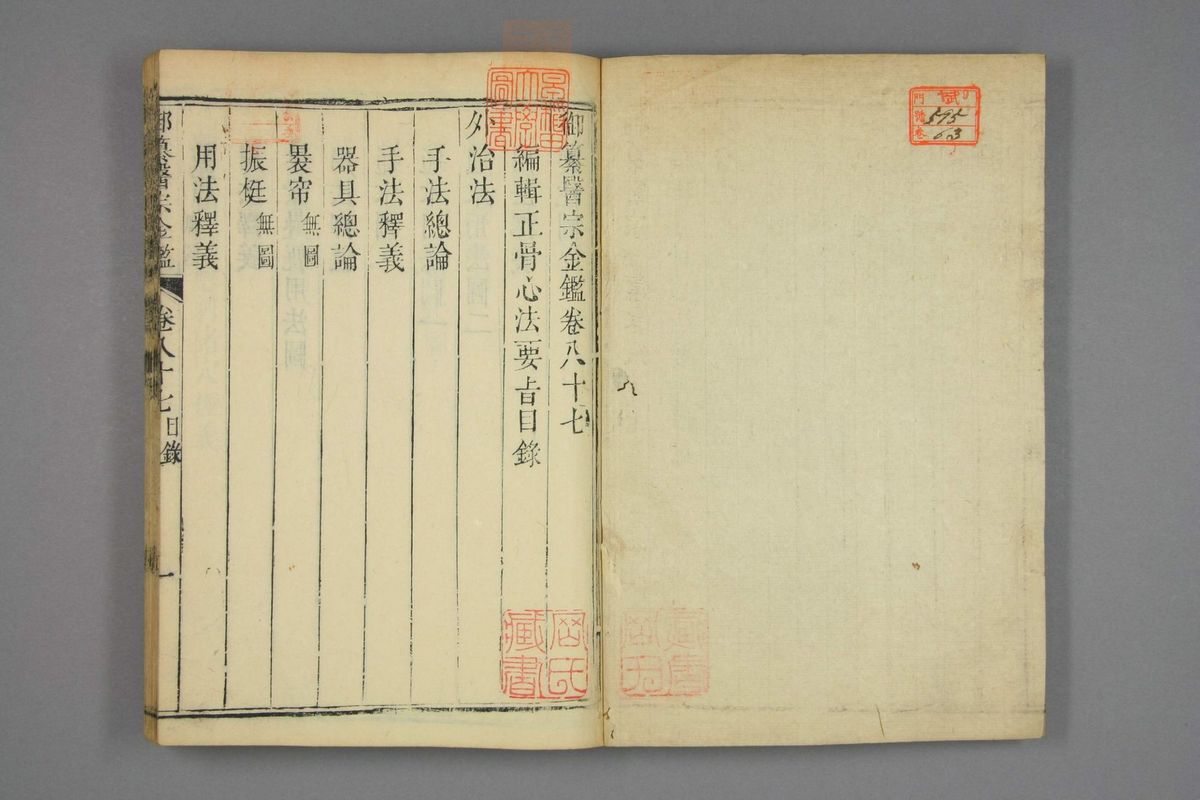 御纂醫宗金鑑卷八十七
編輯正骨心法要旨目錄
外治法
手法總論
手法釋義
器具總論
裹帘 無圖
振梃 無圖
用法釋義
御纂醫宗金鑑 卷八十七目錄 一
門 號 595
卷 63
岡氏
藏書